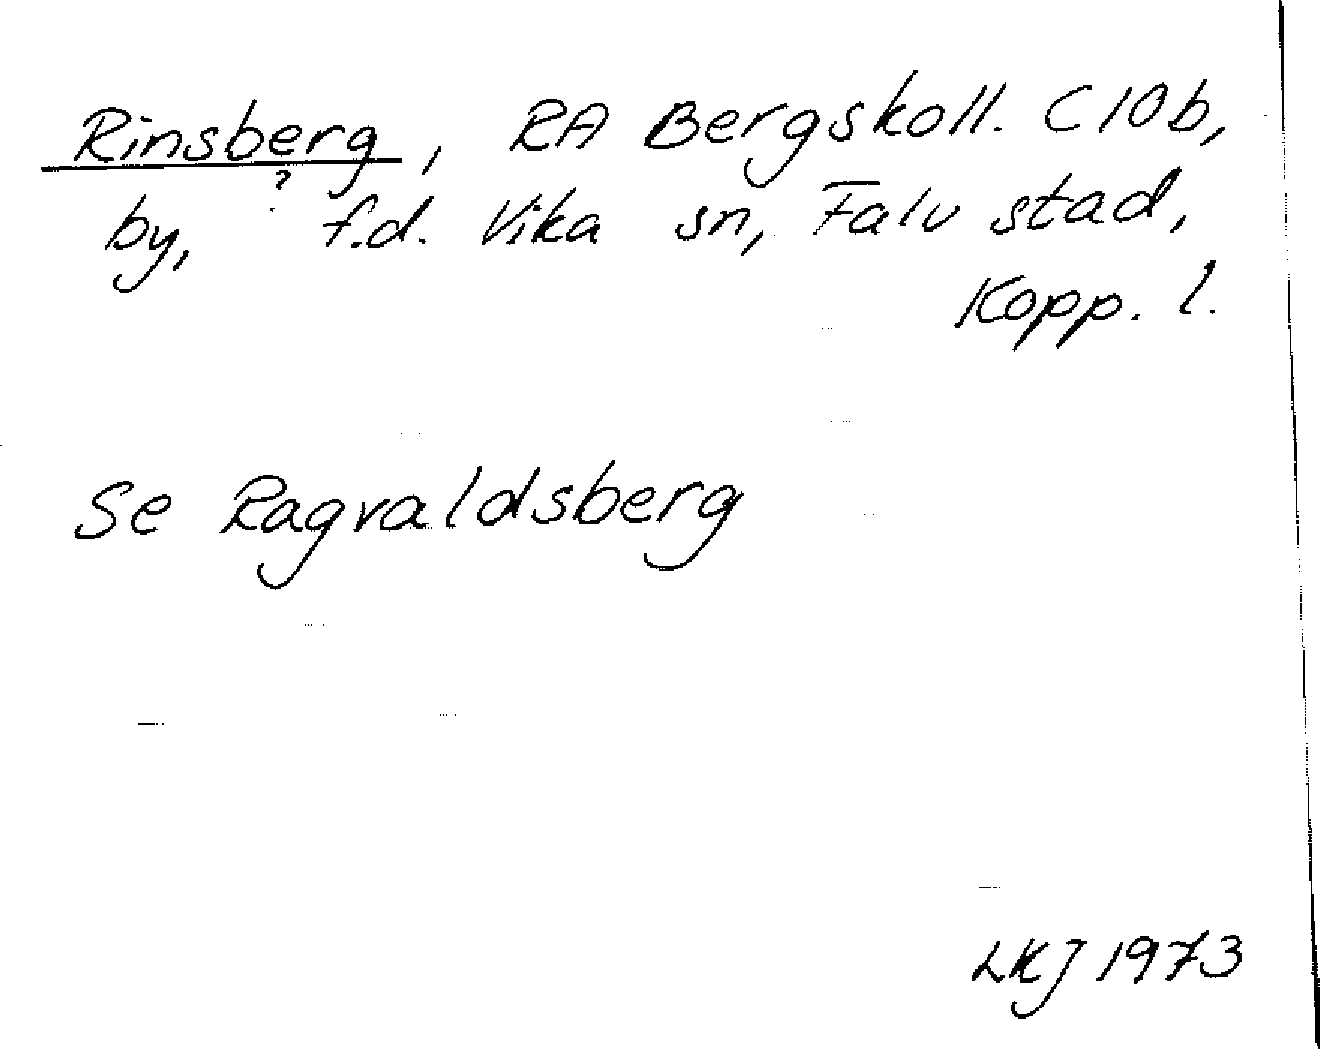 Rinsberg, RA Bergskoll. C 10b,
by, ? f.d. Vika sn, Falu stad,
Kopp. l.
Se Ragvaldsberg
LKJ 1973